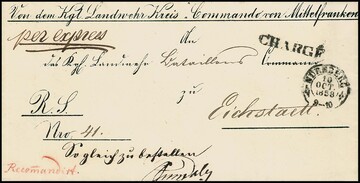 Von dem Kgl. Landwehr Kreis-Commando von Mittelfranken
per expres
An
das Kgl. Landwehr Bataillons Commando
CHARGÉ
zu
NÜRNBERG
10
OCT.
1858
9-10
R. S.
Eichstaett.
Nro. 41.
Sogleich zu bestellen
Recomandirt.